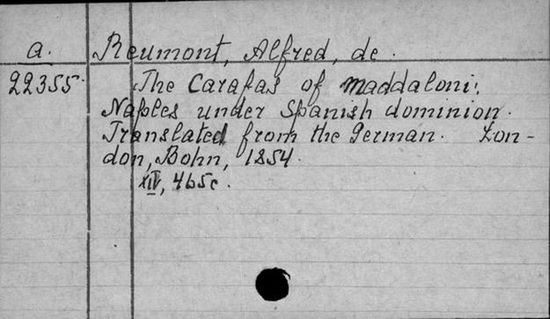 a. Reumont, Alfred, de.
22355. The Carafas of Maddaloni:
Naples under Spanish dominion.
Translated from the German. Lon-
don, Bohn, 1854.
XIV, 465c.